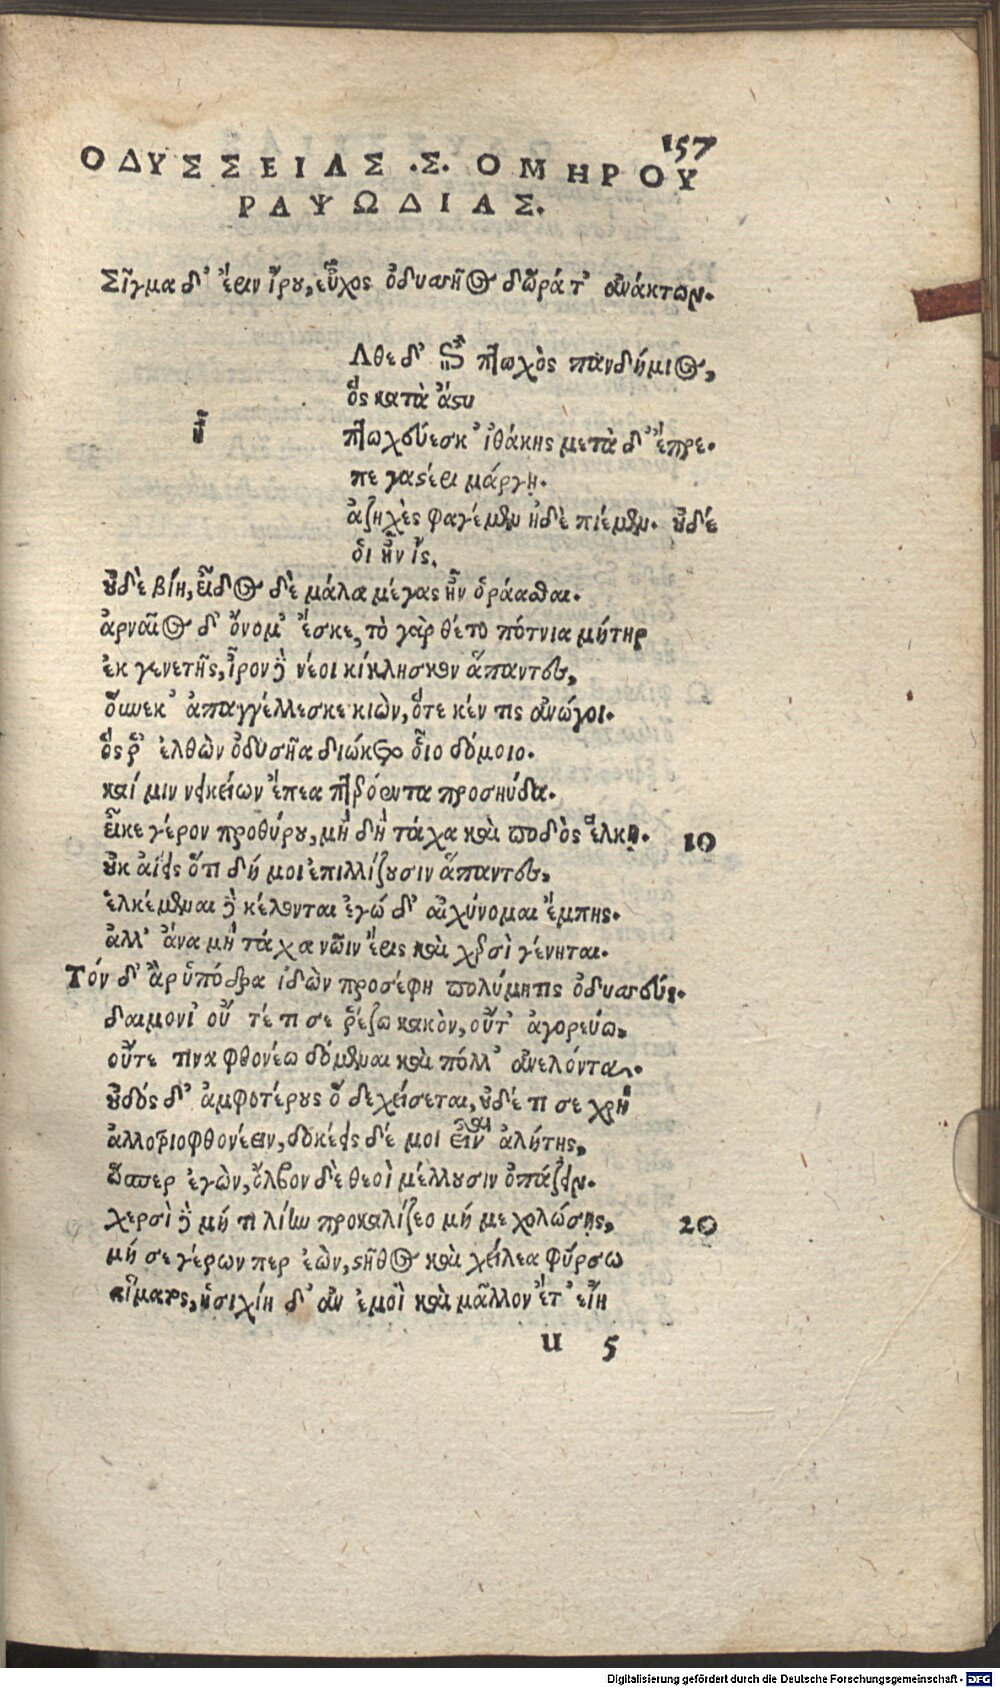 157
ΟΔΥΣΣΕΙΑΣ .Σ. ΟΜΗΡΟΥ
ΡΑΨΩΔΙΑΣ.
Σῖγμα δ' ἔριν ἴρου, εὖχος ὀδυσσῆος δῶρά τ' ἀνάκτων.
Λθε δ' ἐπὶ πτωχὸς πανδήμιος,
ὃς κατὰ ἄστυ
πτωχεύεσκ' ἰθάκης μετὰ δ' ἔπρε.
πε γαστέρι μάργῃ.
ἀζηχὲς φαγέμεν ἠδὲ πιέμεν. οὐδέ
ὁι ἦν ἲς.
οὐδὲ βίη, εἶδος δὲ μάλα μέγας ἦν ὁράασθαι.
ἀρναῖος δ' ὄνομ' ἔσκε, τὸ γὰρ θέτο πότνια μήτηρ
ἐκ γενετῆς, ἶρον δὲ νέοι κίκλησκον ἅπαντες,
οὕνεκ' ἀπαγγέλλεσκε κιὼν, ὅτε κέν τις ἀνώγοι.
ὅς ῥ' ἐλθὼν ὀδυσῆα διώκετο οἷο δόμοιο.
καί μιν νεικείων ἔπεα πτερόεντα προσηύδα.
εἶκε γέρον προθύρου, μὴ δὴ τάχα καὶ ποδὸς ἕλκῃ. 10
οὐκ ἀΐεις ὅτι δή μοι ἐπιλλίζουσιν ἅπαντες,
ἑλκέμεναι δὲ κέλονται ἐγώ δ' αἰσχύνομαι ἔμπης.
ἀλλ' ἄνα μὴ τάχα νῶϊν ἔρις καὶ χερσὶ γένηται.
Τόν δ' ἂρ ὑπόδρα ἰδὼν προσέφη πολύμητις ὀδυσσεύς.
δαιμονι' οὔ τέ τι σε ῥέζω κακὸν, οὔτ' ἀγορεύω,
οὔτε τινα φθονέω δόμεναι καὶ πόλλ' ἀνελόντα.
οὐδός δ' ἀμφοτέρους ὅ δε χείσεται, οὐδέ τι σε χρὴ
ἀλλοτρίοφθονέειν, δοκέεις δέ μοι εἶναι ἀλήτης,
ὥσπερ ἐγὼν, ὄλβον δὲ θεοὶ μέλλουσιν ὀπάζειν.
χερσὶ δὲ μή τι λίην προκαλίζεο μή με χολώσῃς, 20
μή σε γέρων περ ἐὼν, στῆθος καὶ χείλεα φύρσω
αἵματος, ἡσιχίη δ' ἂν ἐμοὶ καὶ μᾶλλον ἔτ' εἴη
u 5
Digitalisierung gefördert durch die Deutsche Forschungsgemeinschaft - DFG